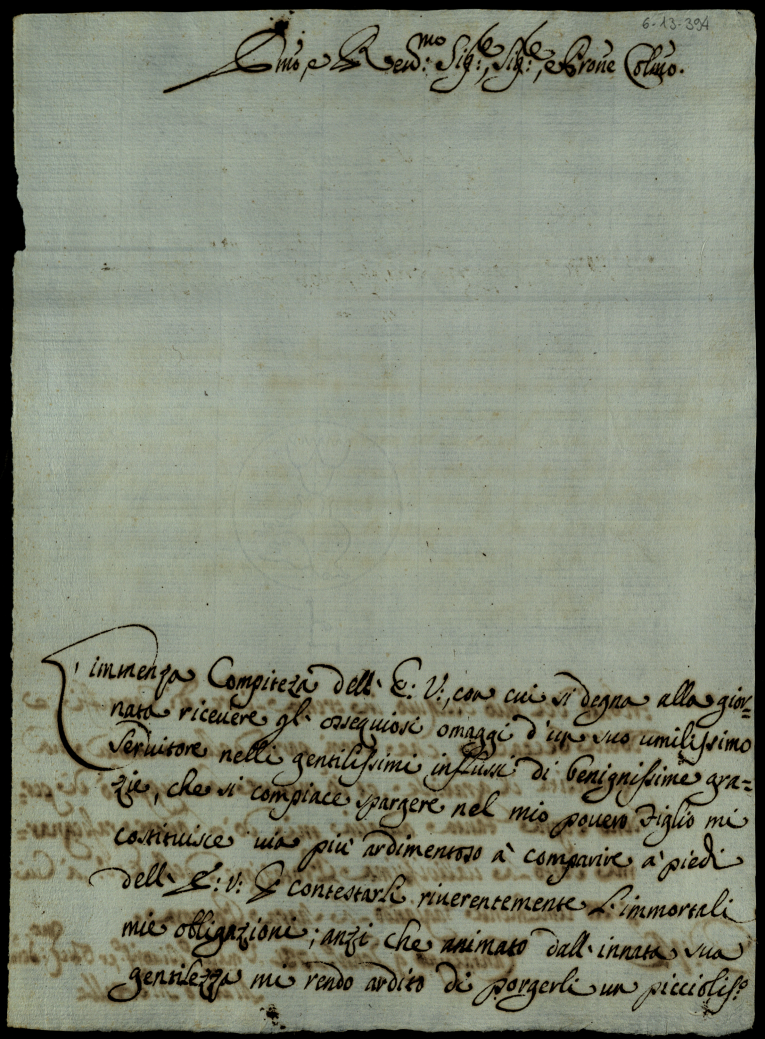 6-13-394
Emo, e Revd:mo Sig:re, Sig:re, e Prone Colmo.
L'immensa Compiteza dell' E: V:, con cui si degna alla gior=
nata ricevere gl' ossequiosi omaggi d'un suo umilissimo
Servitore nelli gentilissimi influssi di benignissime gra=
zie, che si compiace spargere nel mio povero Figlio mi
costituisce via più ardimentoso à comparire a' piedi
dell' E: V: P contestarli riverentemente l' immortali
mie obligazioni; anzi che animato dall' innata sua
gentilezza mi rendo ardito di porgerli un picciolis:o